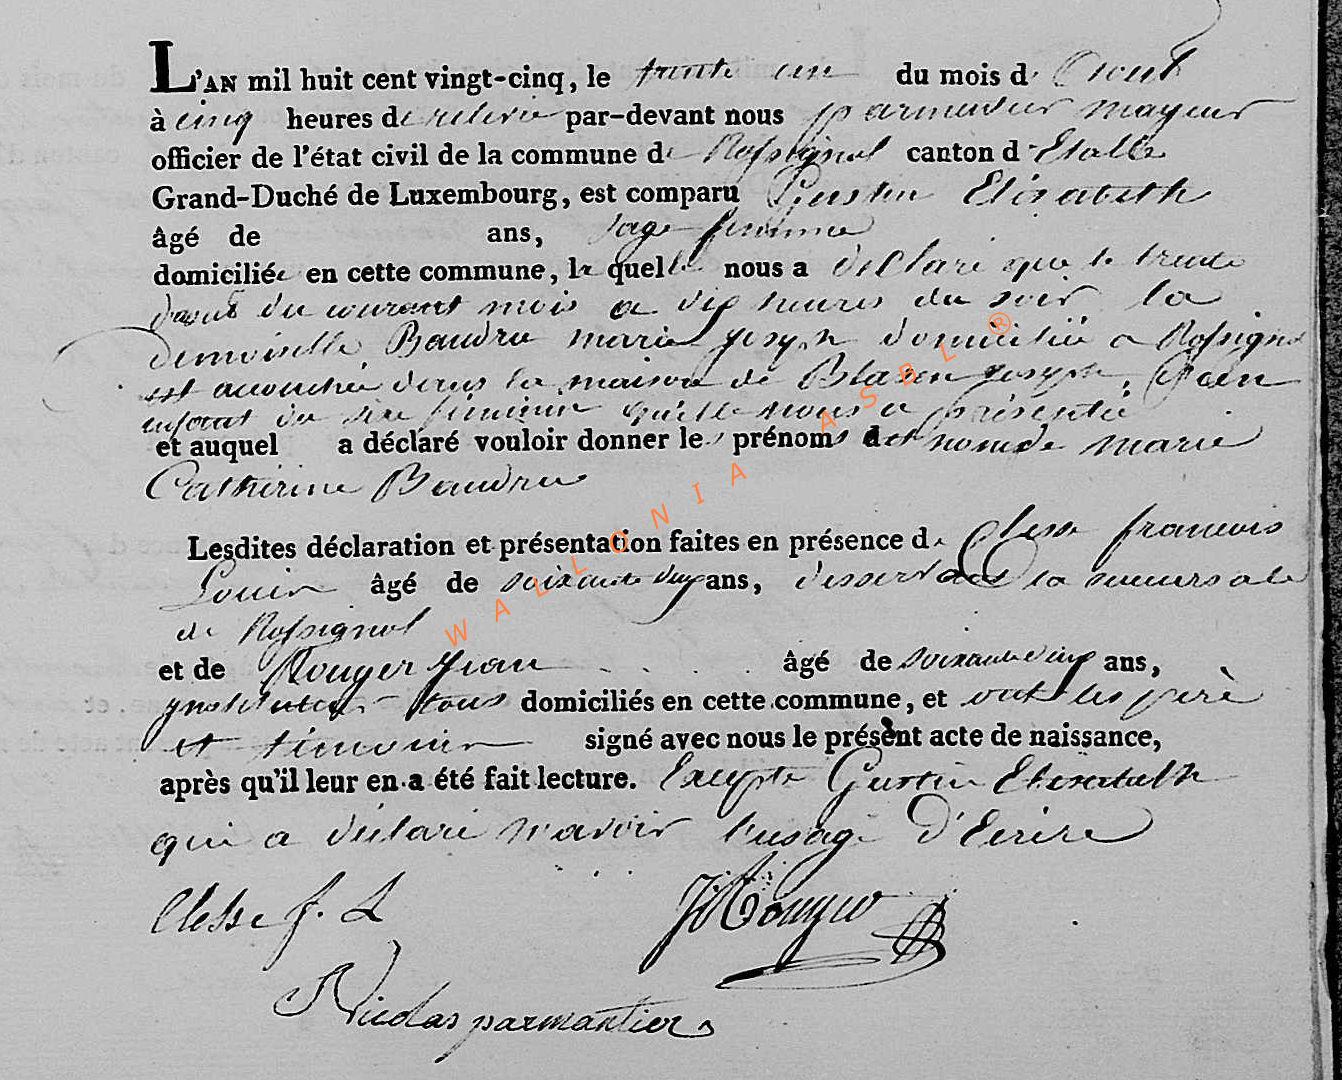 L'AN mil huit cent vingt-cinq, le trente un du mois d' aout
à cinq heures de relevée par-devant nous parmentier mayeur
officier de l'état civil de la commune de Rossignol canton d'Etalle
Grand-Duché de Luxembourg, est comparu Gustin Elisabeth
âgé de ans, sage femme
domiciliée en cette commune, la quelle nous a déclaré que le trente
d'aout du courant mois a dix heures du soir la
demoiselle Baudru marie joseph domiciliée a Rossignol
est accouchée dans la maison de Blaren joseph,
enfant du sexe féminin qu'elle nous a présenté
et auquel a déclaré vouloir donner les prénoms et nom de marie
Catherine Baudru
Lesdites déclaration et présentation faites en présence de Clesse francois
Louis âgé de soixante ans, desservant la succursale
de Rossignol
et de Rouger jean âgé de soixante cinq ans,
instituteur tous domiciliés en cette commune, et ont les
et témoin signé avec nous le présent acte de naissance,
après qu'il leur en a été fait lecture. Excepté Gustin Elisabeth
qui a déclaré n'avoir l'usage D'Ecrire
Clesse f. L
J Rouger
Nicolas parmantier
WALLONIA ASBL ®